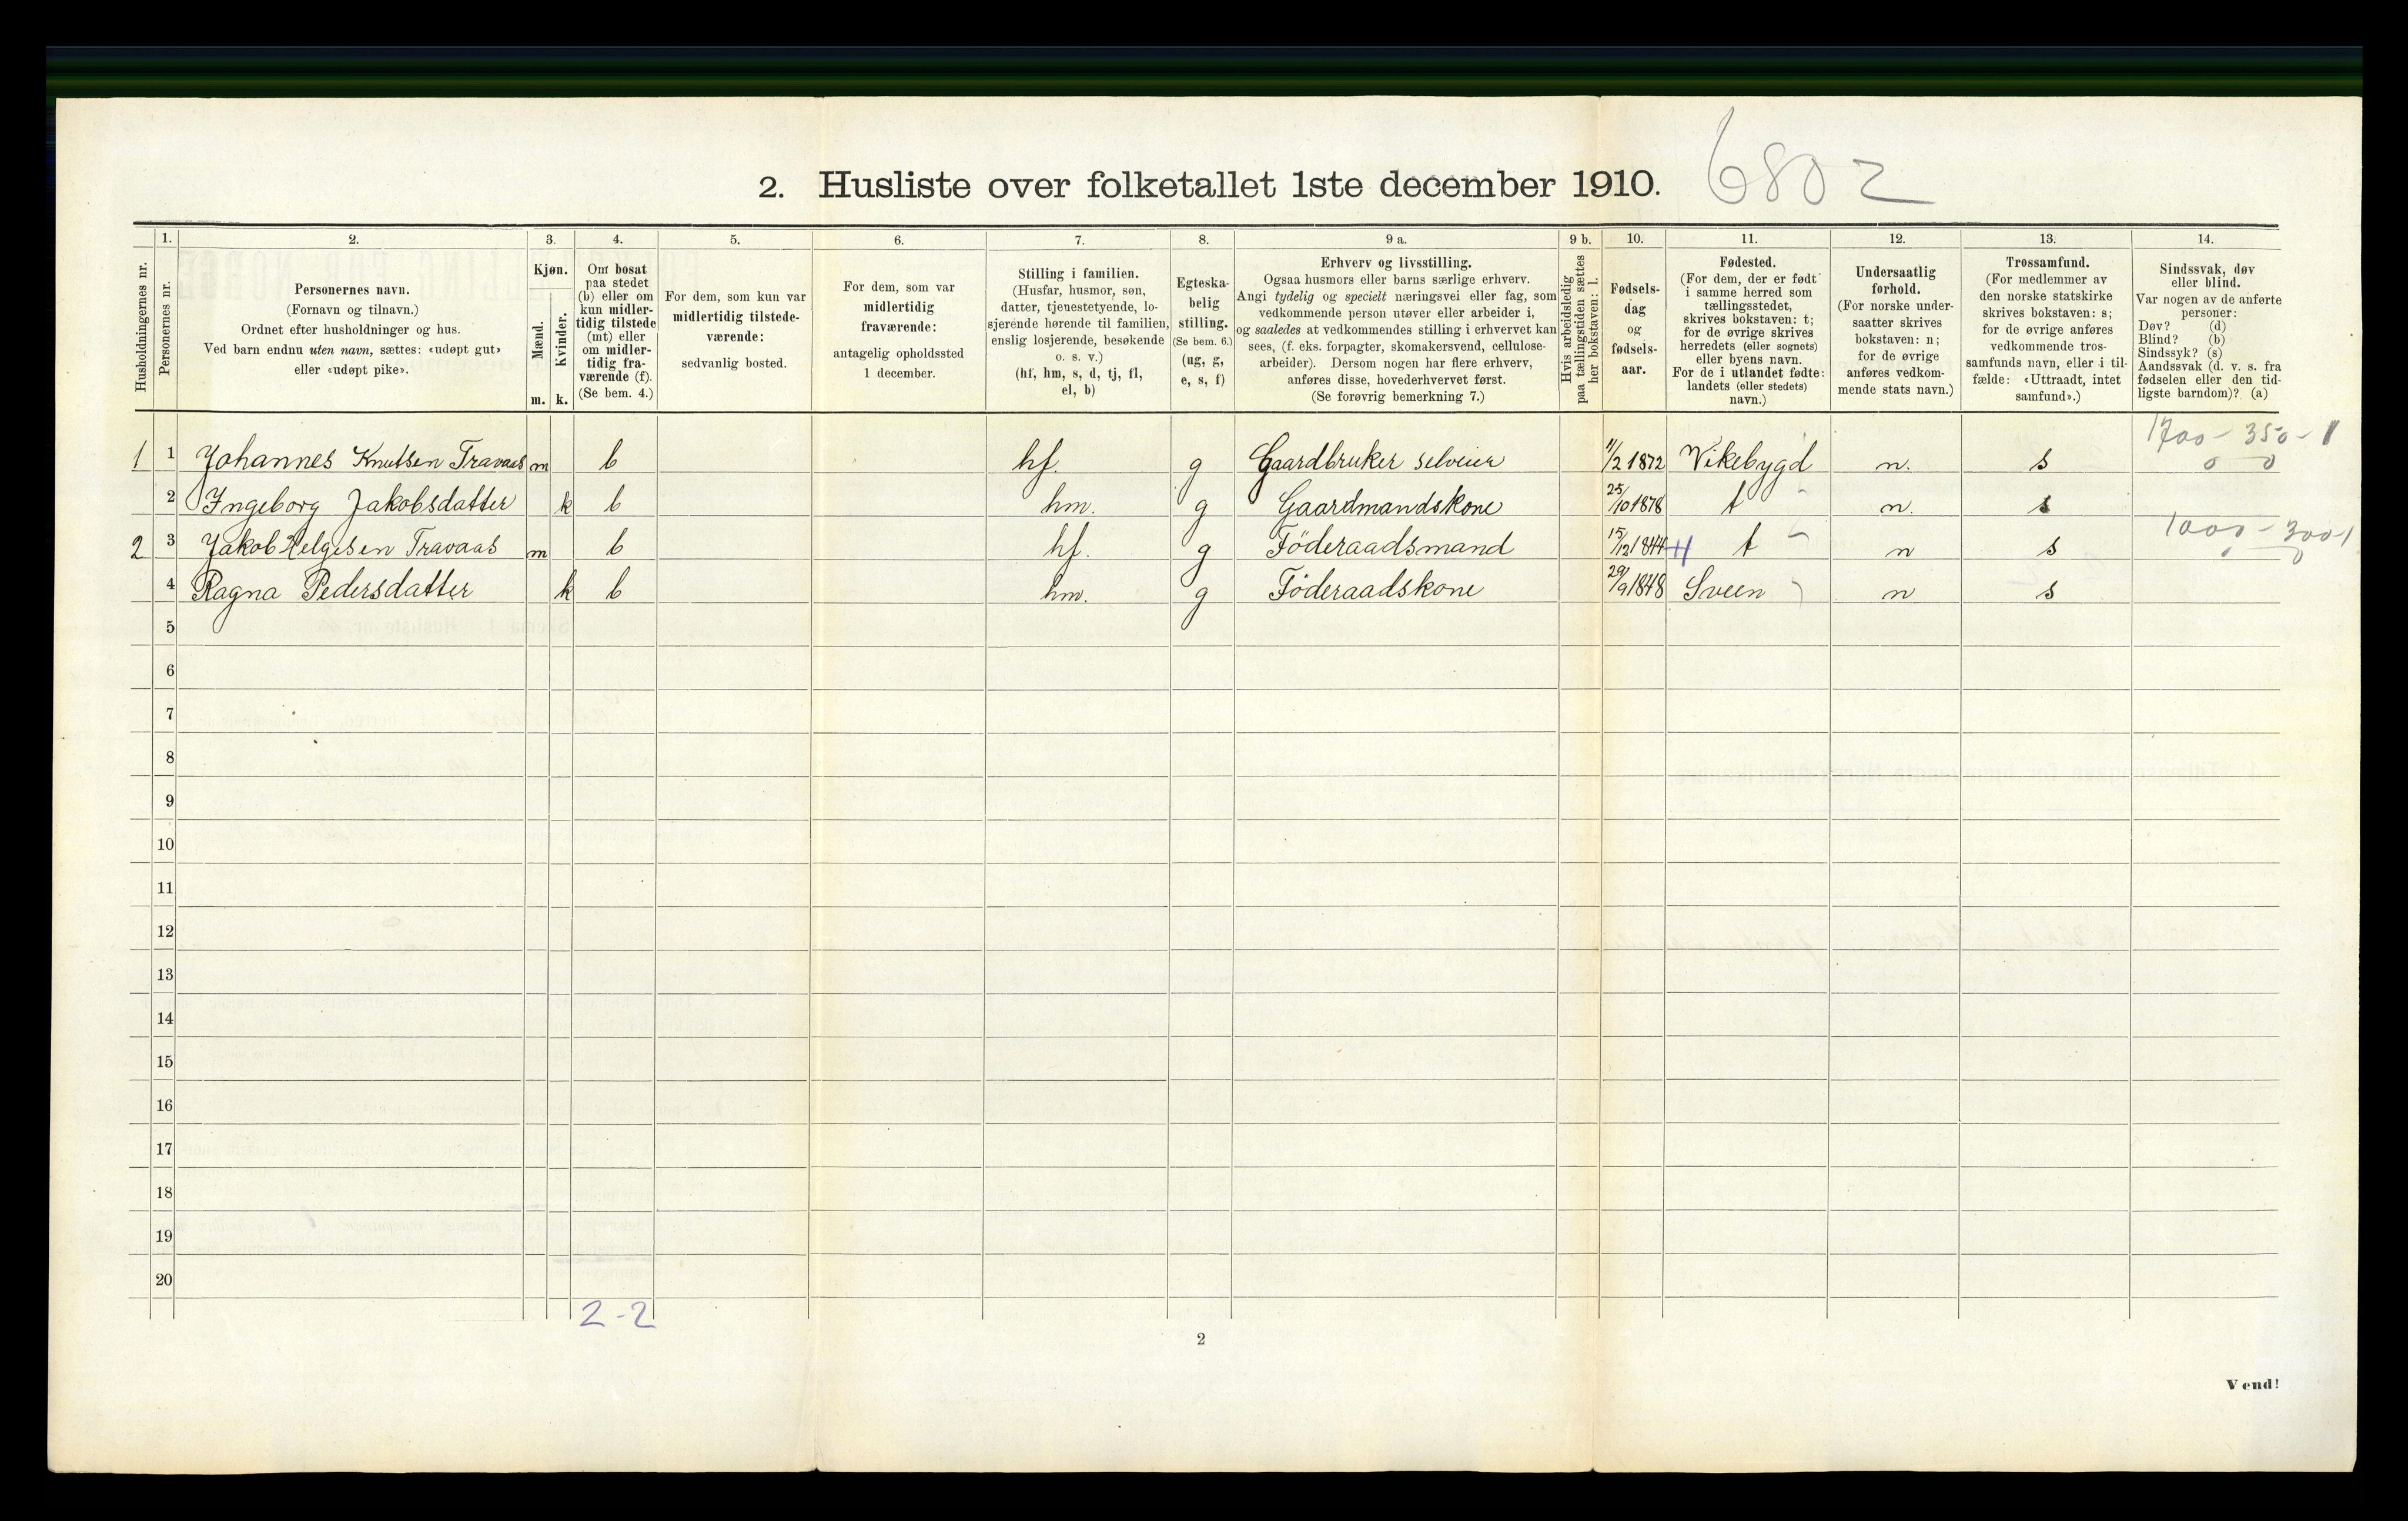 2. Husliste over folketallet 1ste december 1910. 6802
1. 2. 3. 4. 5. 6. 7. 8. 9 a. 9 b. 10. 11. 12. 13. 14.
Husholdningernes nr.
Personernes nr.
Personernes navn.
(Fornavn og tilnavn.)
Ordnet efter husholdninger og hus.
Ved barn endnu uten navn, sættes: «udøpt gut»
eller «udøpt pike».
Kjøn.
Mænd.
Kvinder.
m. k.
Om bosat
paa stedet
(b) eller om
kun midler-
tidig tilstede
(mt) eller
om midler-
tidig fra-
værende (f).
(Se bem. 4.)
For dem, som kun var
midlertidig tilstede-
værende:
sedvanlig bosted.
For dem, som var
midlertidig
fraværende:
antagelig opholdssted
1 december.
Stilling i familien.
(Husfar, husmor, søn,
datter, tjenestetyende, lo-
sjerende hørende til familien,
enslig losjerende, besøkende
o. s. v.)
(hf, hm, s, d, tj, fl,
el, b)
Egteska-
belig
stilling.
(Se bem. 6.)
(ug, g,
e, s, f)
Erhverv og livsstilling.
Ogsaa husmors eller barns særlige erhverv.
Angi tydelig og specielt næringsvei eller fag, som
vedkommende person utøver eller arbeider i,
og saaledes at vedkommendes stilling i erhvervet kan
sees, (f. eks. forpagter, skomakersvend, cellulose-
arbeider). Dersom nogen har flere erhverv,
anføres disse, hovederhvervet først.
(Se forøvrig bemerkning 7.)
Hvis arbeidsledig
paa tællingstiden sættes
her bokstaven: l.
Fødsels-
dag
og
fødsels-
aar.
Fødested.
(For dem, der er født
i samme herred som
tællingsstedet,
skrives bokstaven: t;
for de øvrige skrives
herredets (eller sognets)
eller byens navn.
For de i utlandet fødte:
landets (eller stedets)
navn.)
Undersaatlig
forhold.
(For norske under-
saatter skrives
bokstaven: n;
for de øvrige
anføres vedkom-
mende stats navn.)
Trossamfund.
(For medlemmer av
den norske statskirke
skrives bokstaven: s;
for de øvrige anføres
vedkommende tros-
samfunds navn, eller i til-
fælde: «Uttraadt, intet
samfund».)
Sindssvak, døv
eller blind.
Var nogen av de anførte
personer:
Døv? (d)
Blind? (b)
Sindssyk? (s)
Aandssvak (d. v. s. fra
fødselen eller den tid-
ligste barndom)? (a)
1700 - 350 - 1
1 1 Johannes Knutsen Travaas m b hf. g Gaardbruker selveier 11/2 1872 Vikebygd n. s 0 0
2 Ingeborg Jakobsdatter k b hm. g Gaardmandskone 25/10 1878 t n. s
1000 - 300-1
2 3 Jakob Helgesen Travaas m b hf. g Föderaadsmand 15/12 1844 t n s 0 0
4 Ragna Pedersdatter k b hm. g Föderaadskone 29/9 1848 Sveen n s
5
6
7
8
9
10
11
12
13
14
15
16
17
18
19
20
2-2
2
Vend!